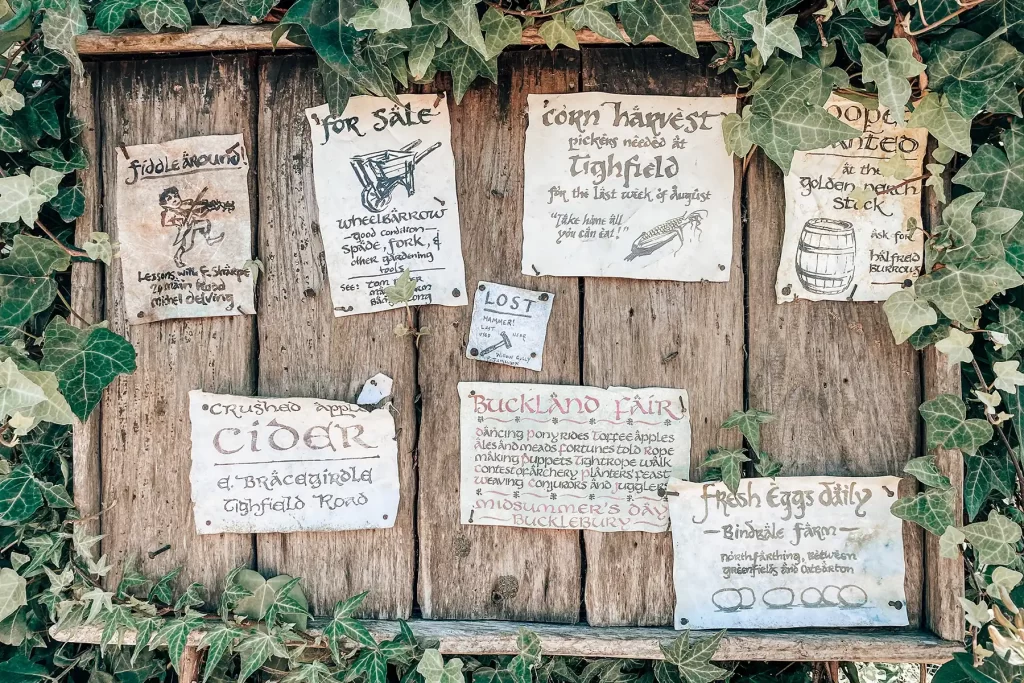 Fiddle Around!
Lessons with F. Sharpe
20 Main Road
Michel Delving
FOR SALE
WHEELBARROW
—good condition—
spade, fork, &
other gardening
tools
SEE:
CORN HARVEST
pickers needed at
Tighfield
for the last week of August
"Take home all
you can eat!"
at the
golden perch
stock
ask for
halfred
burrows
LOST
HAMMER!
LAST
USED
CRUSHED APPLE
CIDER
E. BRACEGIRDLE
Tighfield Road
BUCKLAND FAIR
Dancing Pony rides Toffee apples
Ales and meads Fortunes told Rope
making Puppets Tightrope walk
Contest of archery Planters' feast
Weaving Conjurors and jugglers
MIDSUMMER'S DAY
BUCKLEBURY
Fresh Eggs daily
—Bindbale Farm—
Northfarthing, between
Greenfields and Oatbarton